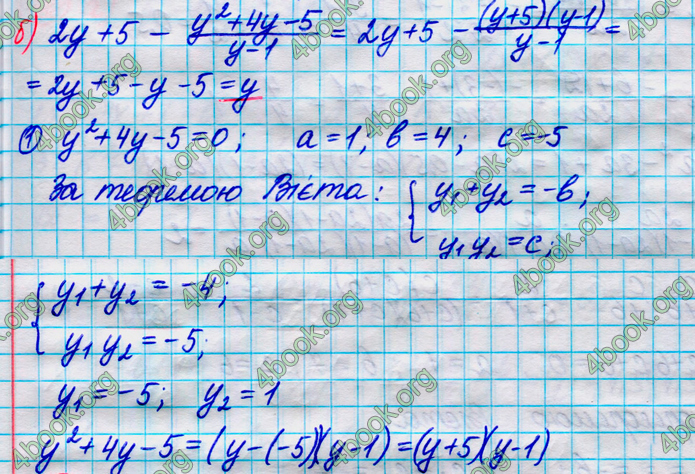 б) 2y + 5 - (y² + 4y - 5)/(y - 1) = 2y + 5 - ((y + 5)(y - 1))/(y - 1) =
= 2y + 5 - y - 5 = y
① y² + 4y - 5 = 0; a = 1, b = 4; c = -5
За теоремою Вієта: { y₁ + y₂ = -b;
y₁ y₂ = c;
{ y₁ + y₂ = -4;
y₁ y₂ = -5;
y₁ = -5; y₂ = 1
y² + 4y - 5 = (y - (-5))(y - 1) = (y + 5)(y - 1)
4book.org